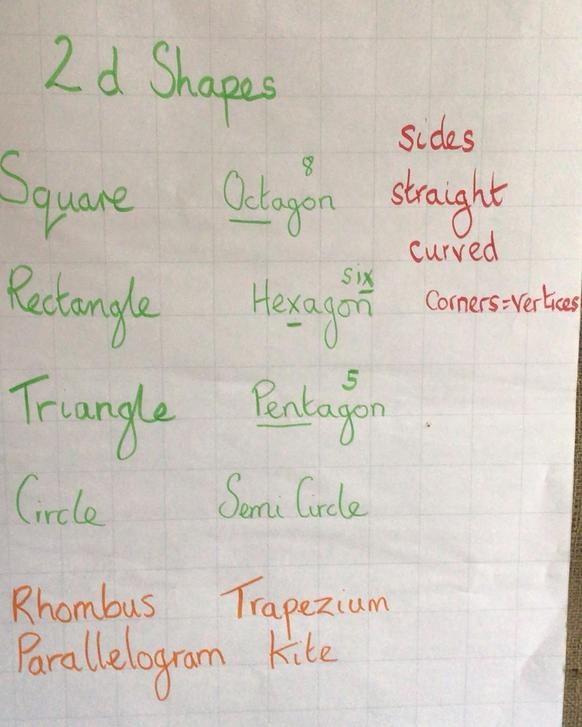 2d Shapes
sides
straight
curved
Corners=vertices
8
Square Octagon
six
Rectangle Hexagon
5
Triangle Pentagon
Circle Semi Circle
Rhombus Trapezium
Parallelogram Kite